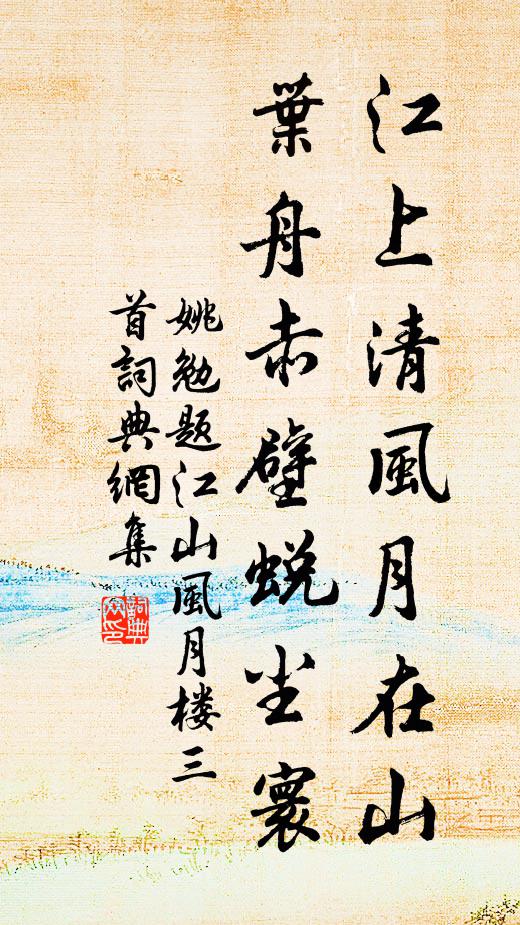 江上清風月在山
葉舟赤壁蜕尘寰
姚勉題江山風月楼三
首詞典網集